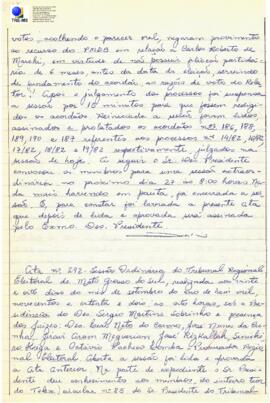 TRE-MS
votos, acolhendo o parecer oral, negaram provimento
ao recurso do PMDB em relação a Carlos Roberto de
Marchi, em virtude de não possuir filiação partidá-
ria de 6 meses antes da data da eleição, servindo
de fundamento do acórdão, as razões de voto do Rela-
tor. Após o julgamento dos processos foi suspensa
a sessão por 10 minutos para que fossem redigi-
dos os acórdãos. Reiniciada a sessão foram lidos,
assinados e publicados os acórdãos nºs 186, 188,
189, 190 e 187 referentes aos processos nºs 14/82,
17/82, 18/82 e 19/82 respectivamente, julgados na
sessão de hoje. A seguir o Sr. Des. Presidente
convocou os membros para uma sessão extraor-
dinária no próximo dia 27 às 8:00 horas. Na-
da mais havendo em pauta, foi encerrada a ses-
são. E, para constar foi lavrada a presente ata
que depois de lida e aprovada será assinada
pelo Exmo. Des. Presidente.
Ata nº 292. Sessão Ordinária do Tribunal Regional
Eleitoral de Mato Grosso do Sul, realizada aos vinte
e oito dias do mês de setembro do ano de hum mil,
novecentos e oitenta e dois, às oito horas, sob a Pre-
sidência do Des. Sergio Martins Sobrinho e presença
dos Juízes: Des. Leão Neto do Carmo, José Nunes da Cu-
nha, Jirair Aram Meguerian, José Rizkallah,
Kaiga e Octávio Pacheco Lomba, Procurador Regional
Eleitoral. Aberta a sessão foi lida e aprovada
a ata anterior. Na parte de expediente o Sr. Presi-
dente deu conhecimento aos membros, do inteiro teor
do Telex, circular nº 85 do Sr. Presidente do Tribunal